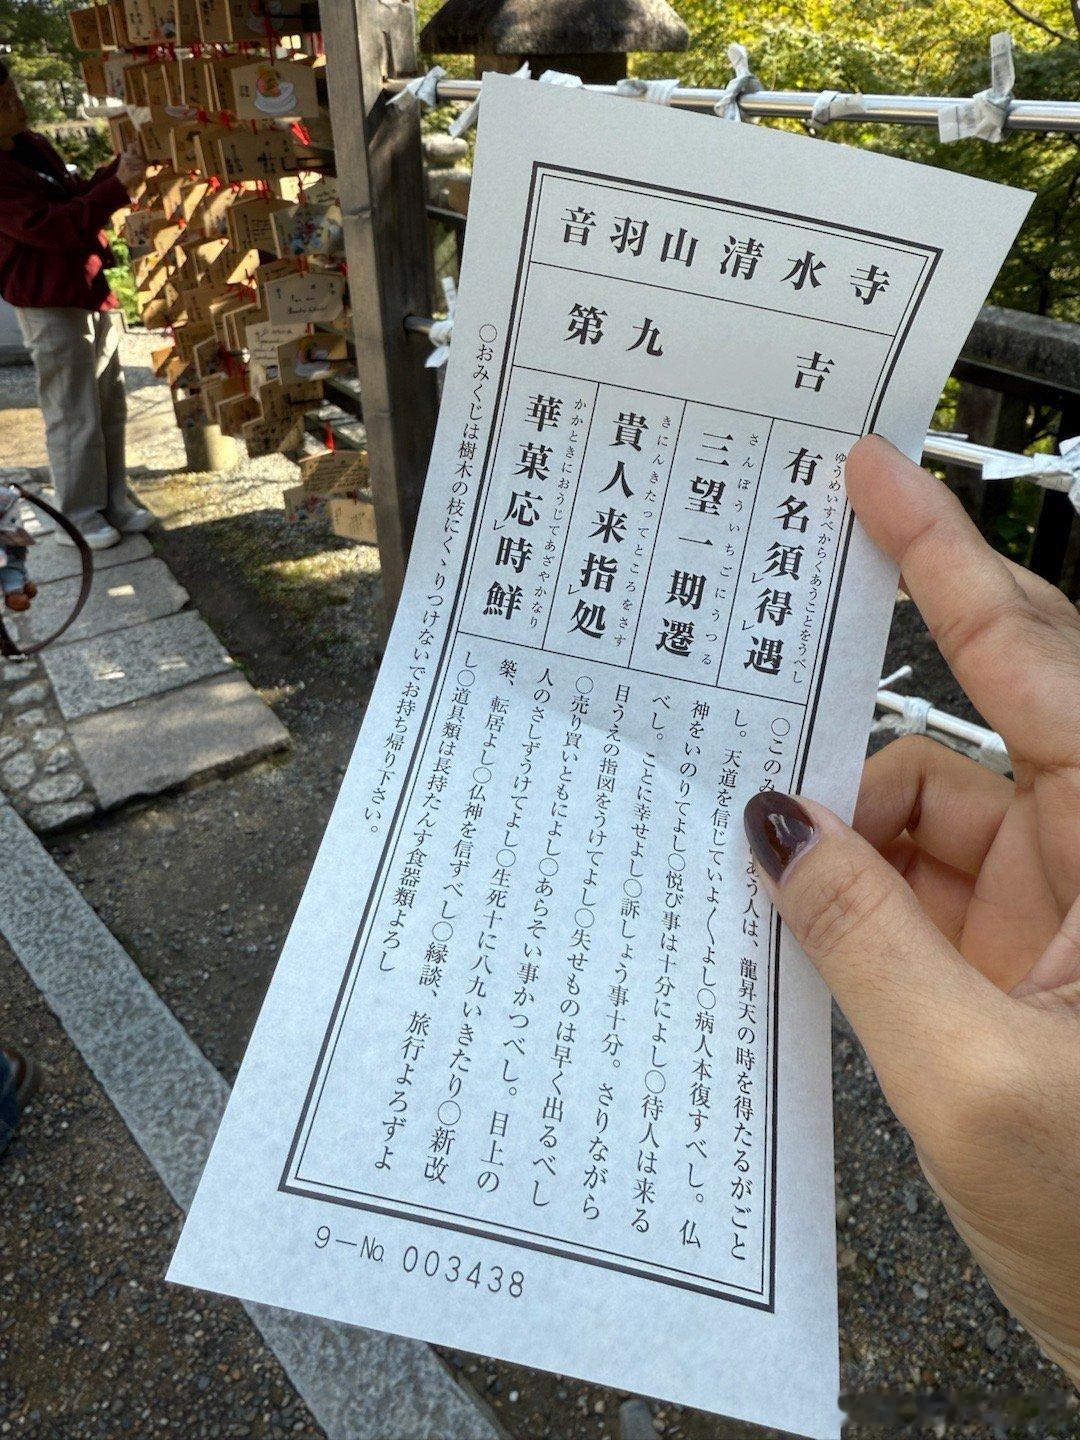 音羽山清水寺
第九 吉
有名須レ得レ遇
ゆうめいすべからくあうことをうべし
三望一期遷
さんぼういちごにうつる
貴人来指レ処
きにんきたってところをさす
華菓応レ時鮮
かかときにおうじてあざやかなり
〇このみ あう人は、龍昇天の時を得たるがごと
し。天道を信じていよ〱よし〇病人本復すべし。仏
神をいのりてよし〇悦び事は十分によし〇待人は来る
べし。ことに幸せよし〇訴しょう事十分。さりながら
目うえの指図をうけてよし〇失せものは早く出るべし
〇売り買いともによし〇あらそい事かつべし。目上の
人のさしずうけてよし〇生死十に八九いきたり〇新改
築、転居よし〇仏神を信ずべし〇縁談、旅行よろずよ
し〇道具類は長持たんす食器類よろし
〇おみくじは樹木の枝にくゝりつけないでお持ち帰り下さい。
9－№ 003438